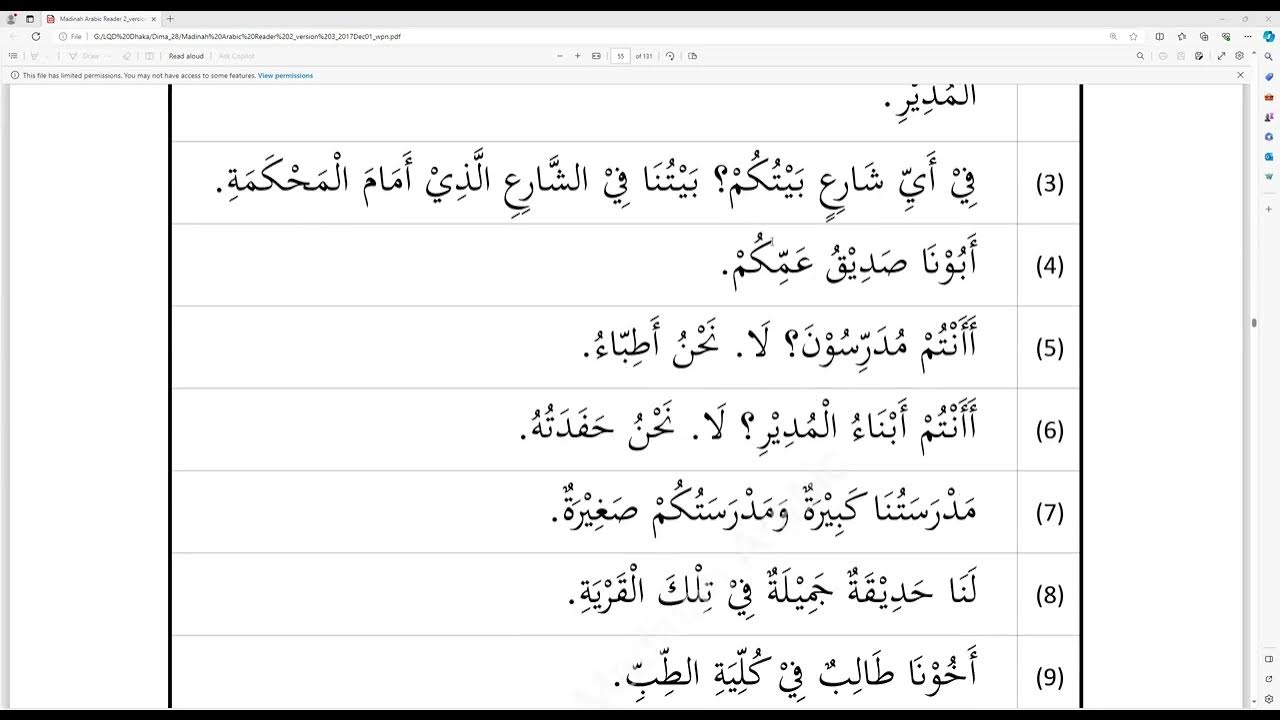 Madinah Arabic Reader 2_versio
File G:/LQD%20Dhaka/Dima_28/Madinah%20Arabic%20Reader%202_version%203_2017Dec01_wpn.pdf
Draw Read aloud Ask Copilot 55 of 131
This file has limited permissions. You may not have access to some features. View permissions
الْمُدِيْرِ.
(3) فِيْ أَيِّ شَارِعٍ بَيْتُكُمْ؟ بَيْتُنَا فِيْ الشَّارِعِ الَّذِيْ أَمَامَ الْمَحْكَمَةِ.
(4) أَبُوْنَا صَدِيْقُ عَمِّكُمْ.
(5) أَأَنْتُمْ مُدَرِّسُوْنَ؟ لَا. نَحْنُ أَطِبّاءُ.
(6) أَأَنْتُمْ أَبْنَاءُ الْمُدِيْرِ؟ لَا. نَحْنُ حَفَدَتُهُ.
(7) مَدْرَسَتُنَا كَبِيْرَةٌ وَمَدْرَسَتُكُمْ صَغِيْرَةٌ.
(8) لَنَا حَدِيْقَةٌ جَمِيْلَةٌ فِيْ تِلْكَ الْقَرْيَةِ.
(9) أَخُوْنَا طَالِبٌ فِيْ كُلِّيَةِ الطِّبِّ.